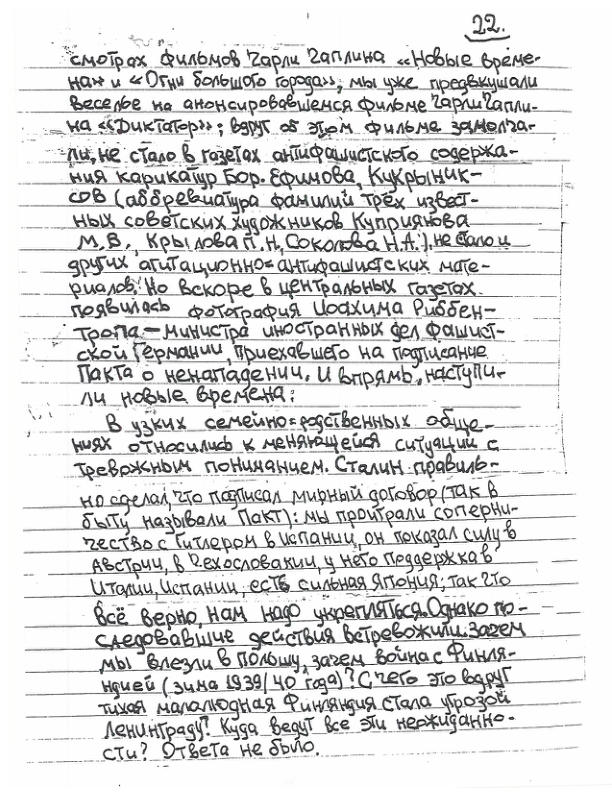 22.
смотрах фильмов Чарли Чаплина «Новые време-
на» и «Огни большого города», мы уже предвкушали
веселье на анонсировавшемся фильме Чарли Чапли-
на «Диктатор»; вдруг об этом фильме замолча-
ли, не стало в газетах антифашистского содержа-
ния карикатур Бор. Ефимова, Кукрыник-
сов (аббревиатура фамилий трёх извест-
ных советских художников Куприянова
М.В., Крылова П.Н, Соколова Н.А.). не стало и
других агитационно=антифашистских мате-
риалов. Но вскоре в центральных газетах
появилась фотография Иоахима Риббен-
тропа – министра иностранных дел фашист-
ской Германии, приехавшего на подписание
Пакта о ненападении. И впрямь, наступи-
ли новые времена:
В узких семейно=родственных обще-
ниях относились к меняющейся ситуации с
тревожным пониманием. Сталин правиль-
но сделал, что подписал мирный договор (так в
быту называли Пакт): мы проиграли соперни-
чество с Гитлером в Испании, он показал силу в
Австрии, в Чехословакии, у него поддержка в
Италии, Испании, есть сильная Япония; так что
всё верно, нам надо укрепляться. Однако по-
следовавшие действия встревожили: зачем
мы влезли в Польшу, зачем война с Финля-
ндией (зима 1939/40 года)? С чего это вдруг
тихая малалюдная Финляндия стала угрозой
Ленинграду? Куда ведут все эти неожиданно-
сти? Ответа не было.